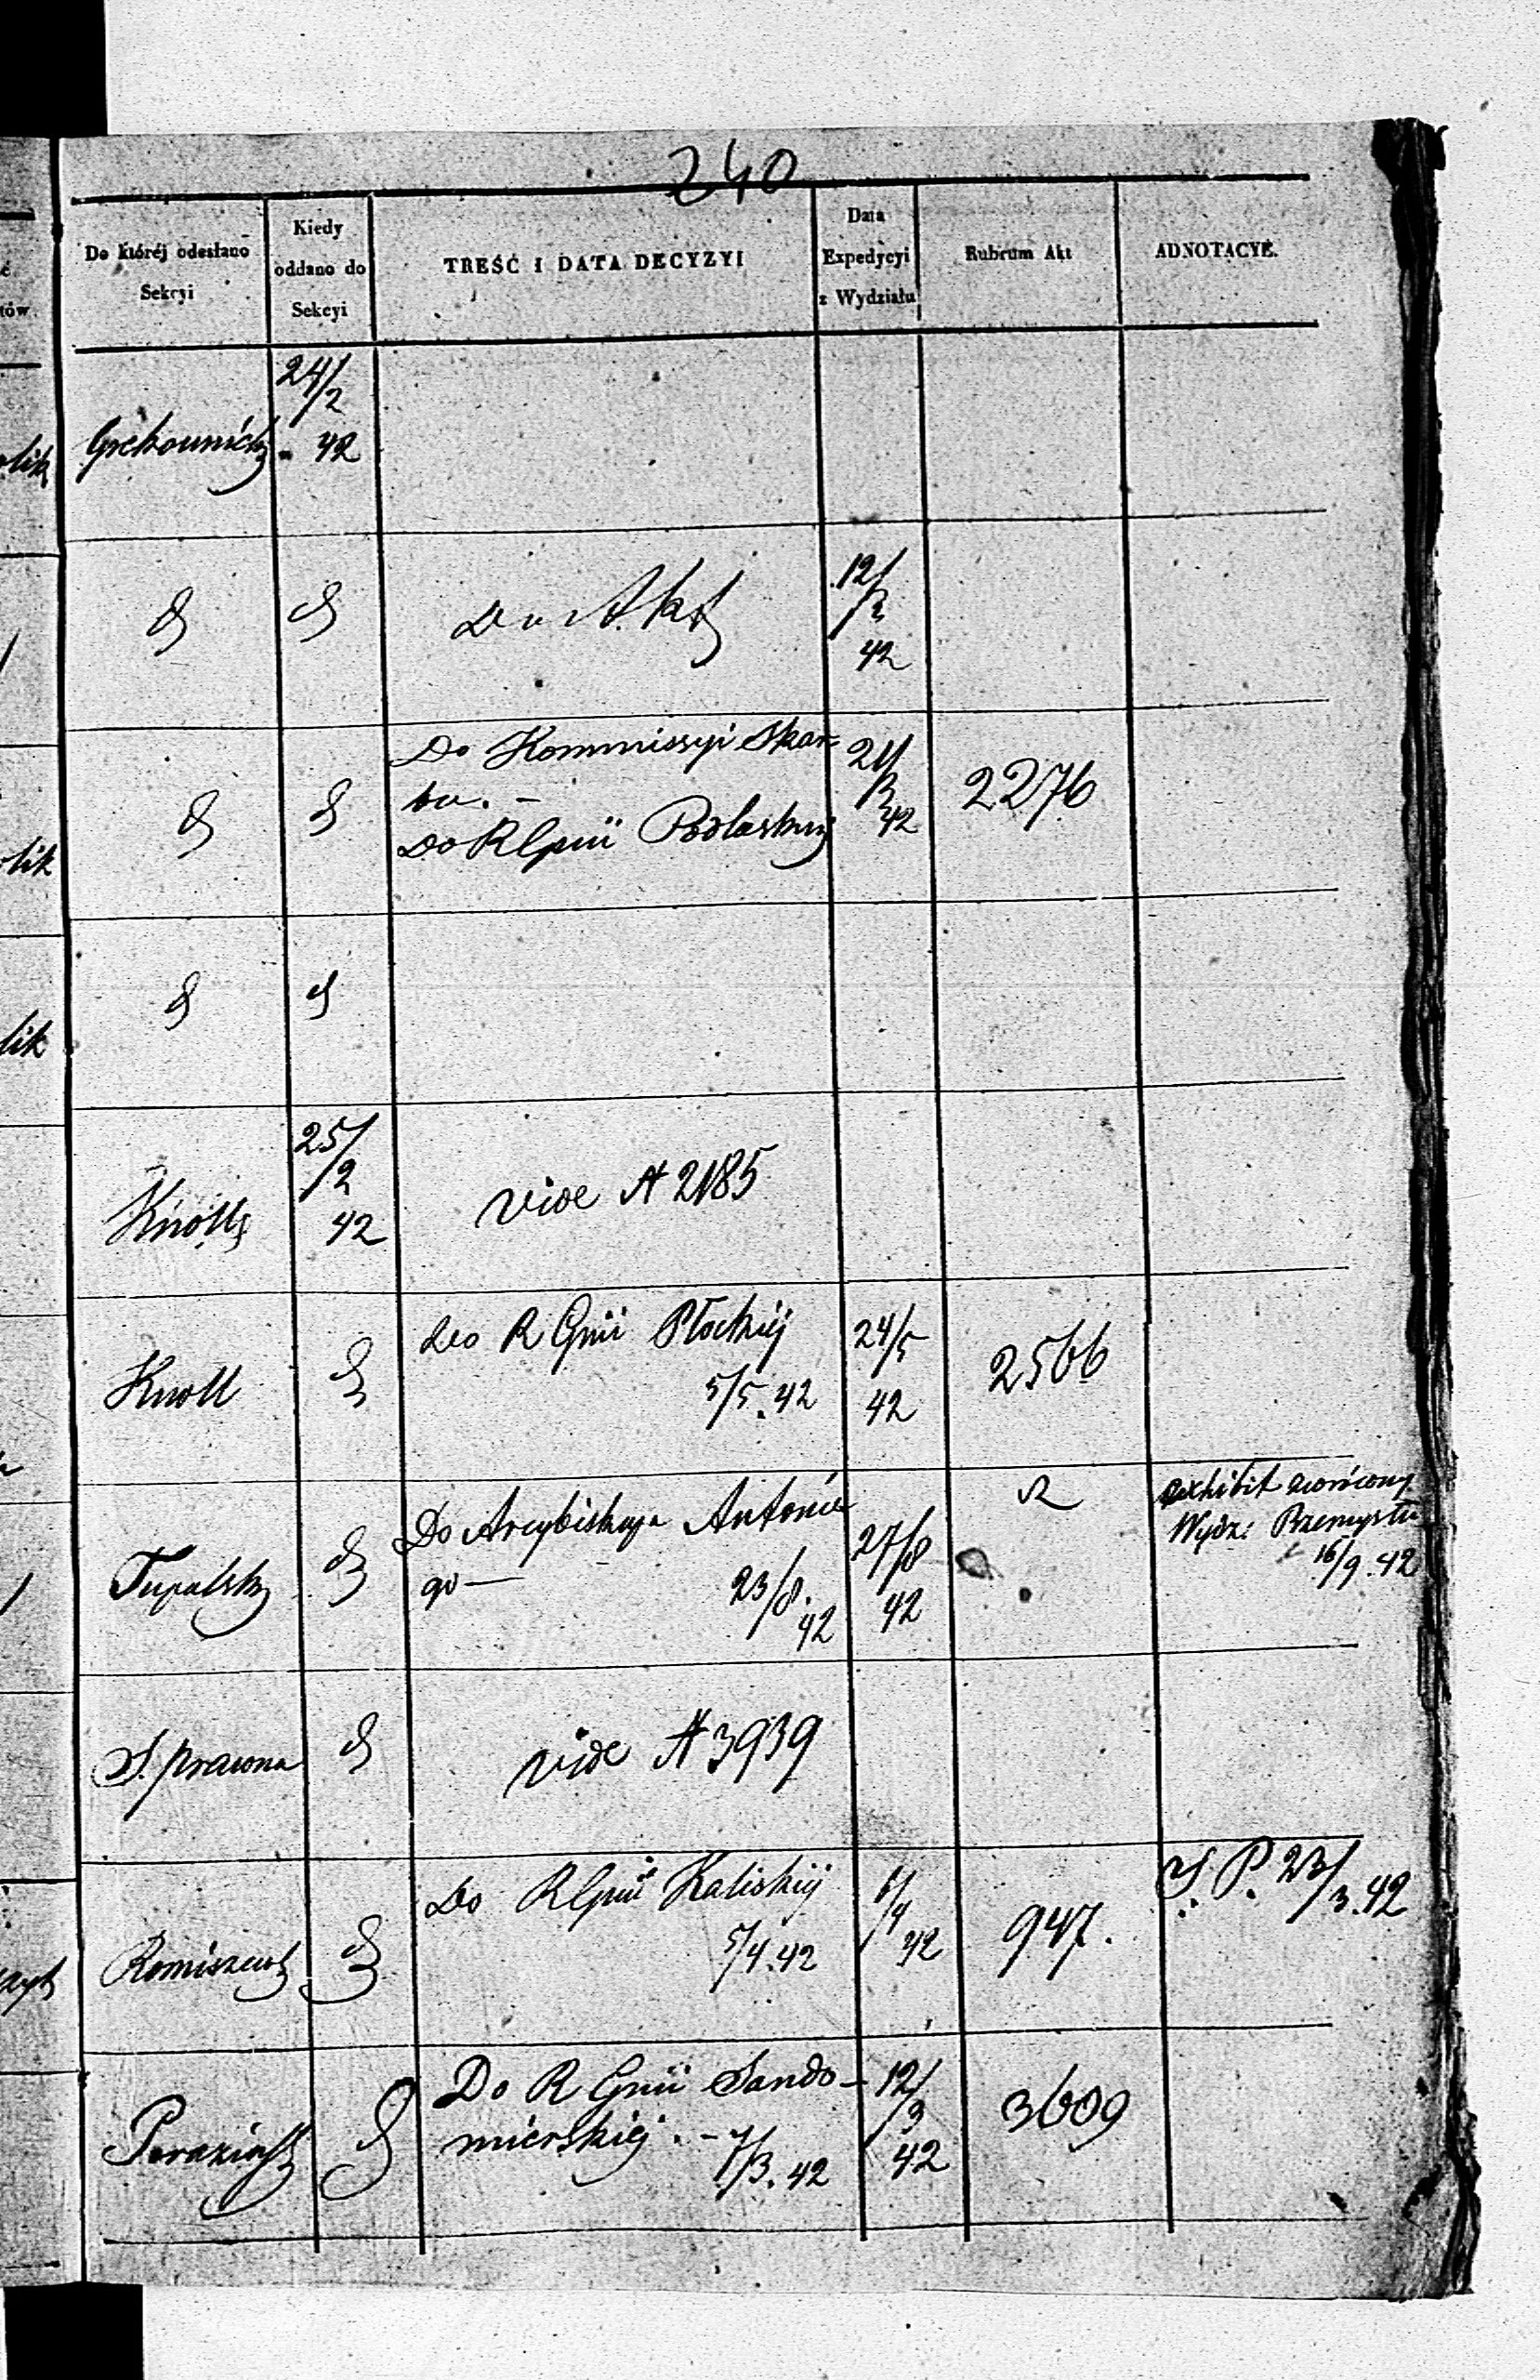 240
Do któréj odesłano
Sekcyi
Kiedy
oddano do
Sekcyi
TREŚĆ I DATA DECYZYI
Data
Expedycyi
z Wydziału
Rubrum Akt
ADNOTACYE.
24/2
42
Do Akt
12/
42
Do Kommissyi Skar-
bu. -
Do RGpnii Podlaskiéj
42
2276
25/
2
42
vide N 2185
Knoll
do R Gnii Płockiéj
5/5. 42
24/5
42
2566
Tupalski
Do Arcybiskupa Antonie
go —
23/8.
42
27/8
42
exhibit zwrócony
Wydz: Przemysłu
16/9. 42
S. prawna
vide N 3939
Do RGpnii Kaliskiéj
5/4. 42
6/4
42
947.
S. P. 23/3. 42
Do R Gnii Sando-
mierskiéj. -
7/3. 42
12/3
42
3609
olik
olik
lik
tów.